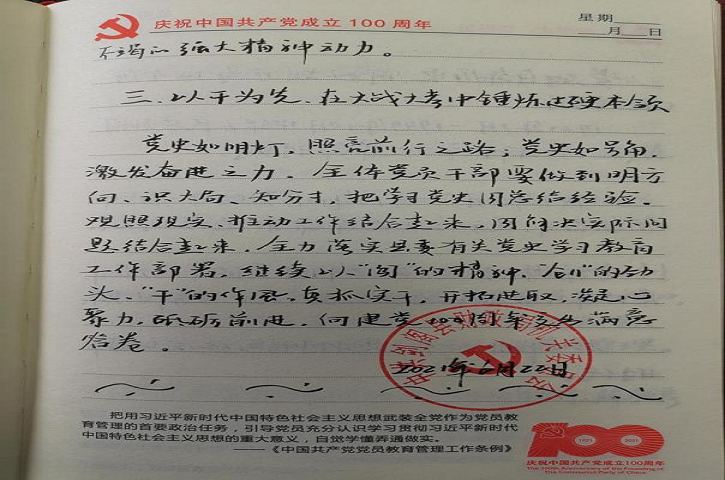 庆祝中国共产党成立100周年
星期
月 日
不竭的强大精神动力。
三、以干为先,在大战大考中锤炼过硬本领
党史如明灯,照亮前行之路;党史如号角,
激发奋进之力。全体党员干部要做到明方
向、识大局、知分寸,把学习党史同总结经验、
观照现实、推动工作结合起来,同解决实际问
题结合起来,全力落实县委有关党史学习教育
工作部署,继续以“闯”的精神、“创”的劲
头、“干”的作风,真抓实干,开拓进取,凝心
聚力,砥砺前进,向建党100周年交出满意
答卷。
2021年6月22日
把用习近平新时代中国特色社会主义思想武装全党作为党员教
育管理的首要政治任务,引导党员充分认识学习贯彻习近平新时代
中国特色社会主义思想的重大意义,自觉学懂弄通做实。
——《中国共产党党员教育管理工作条例》
100
1921 2021
庆祝中国共产党成立100周年
The 100th Anniversary of the Founding of
The Communist Party of China